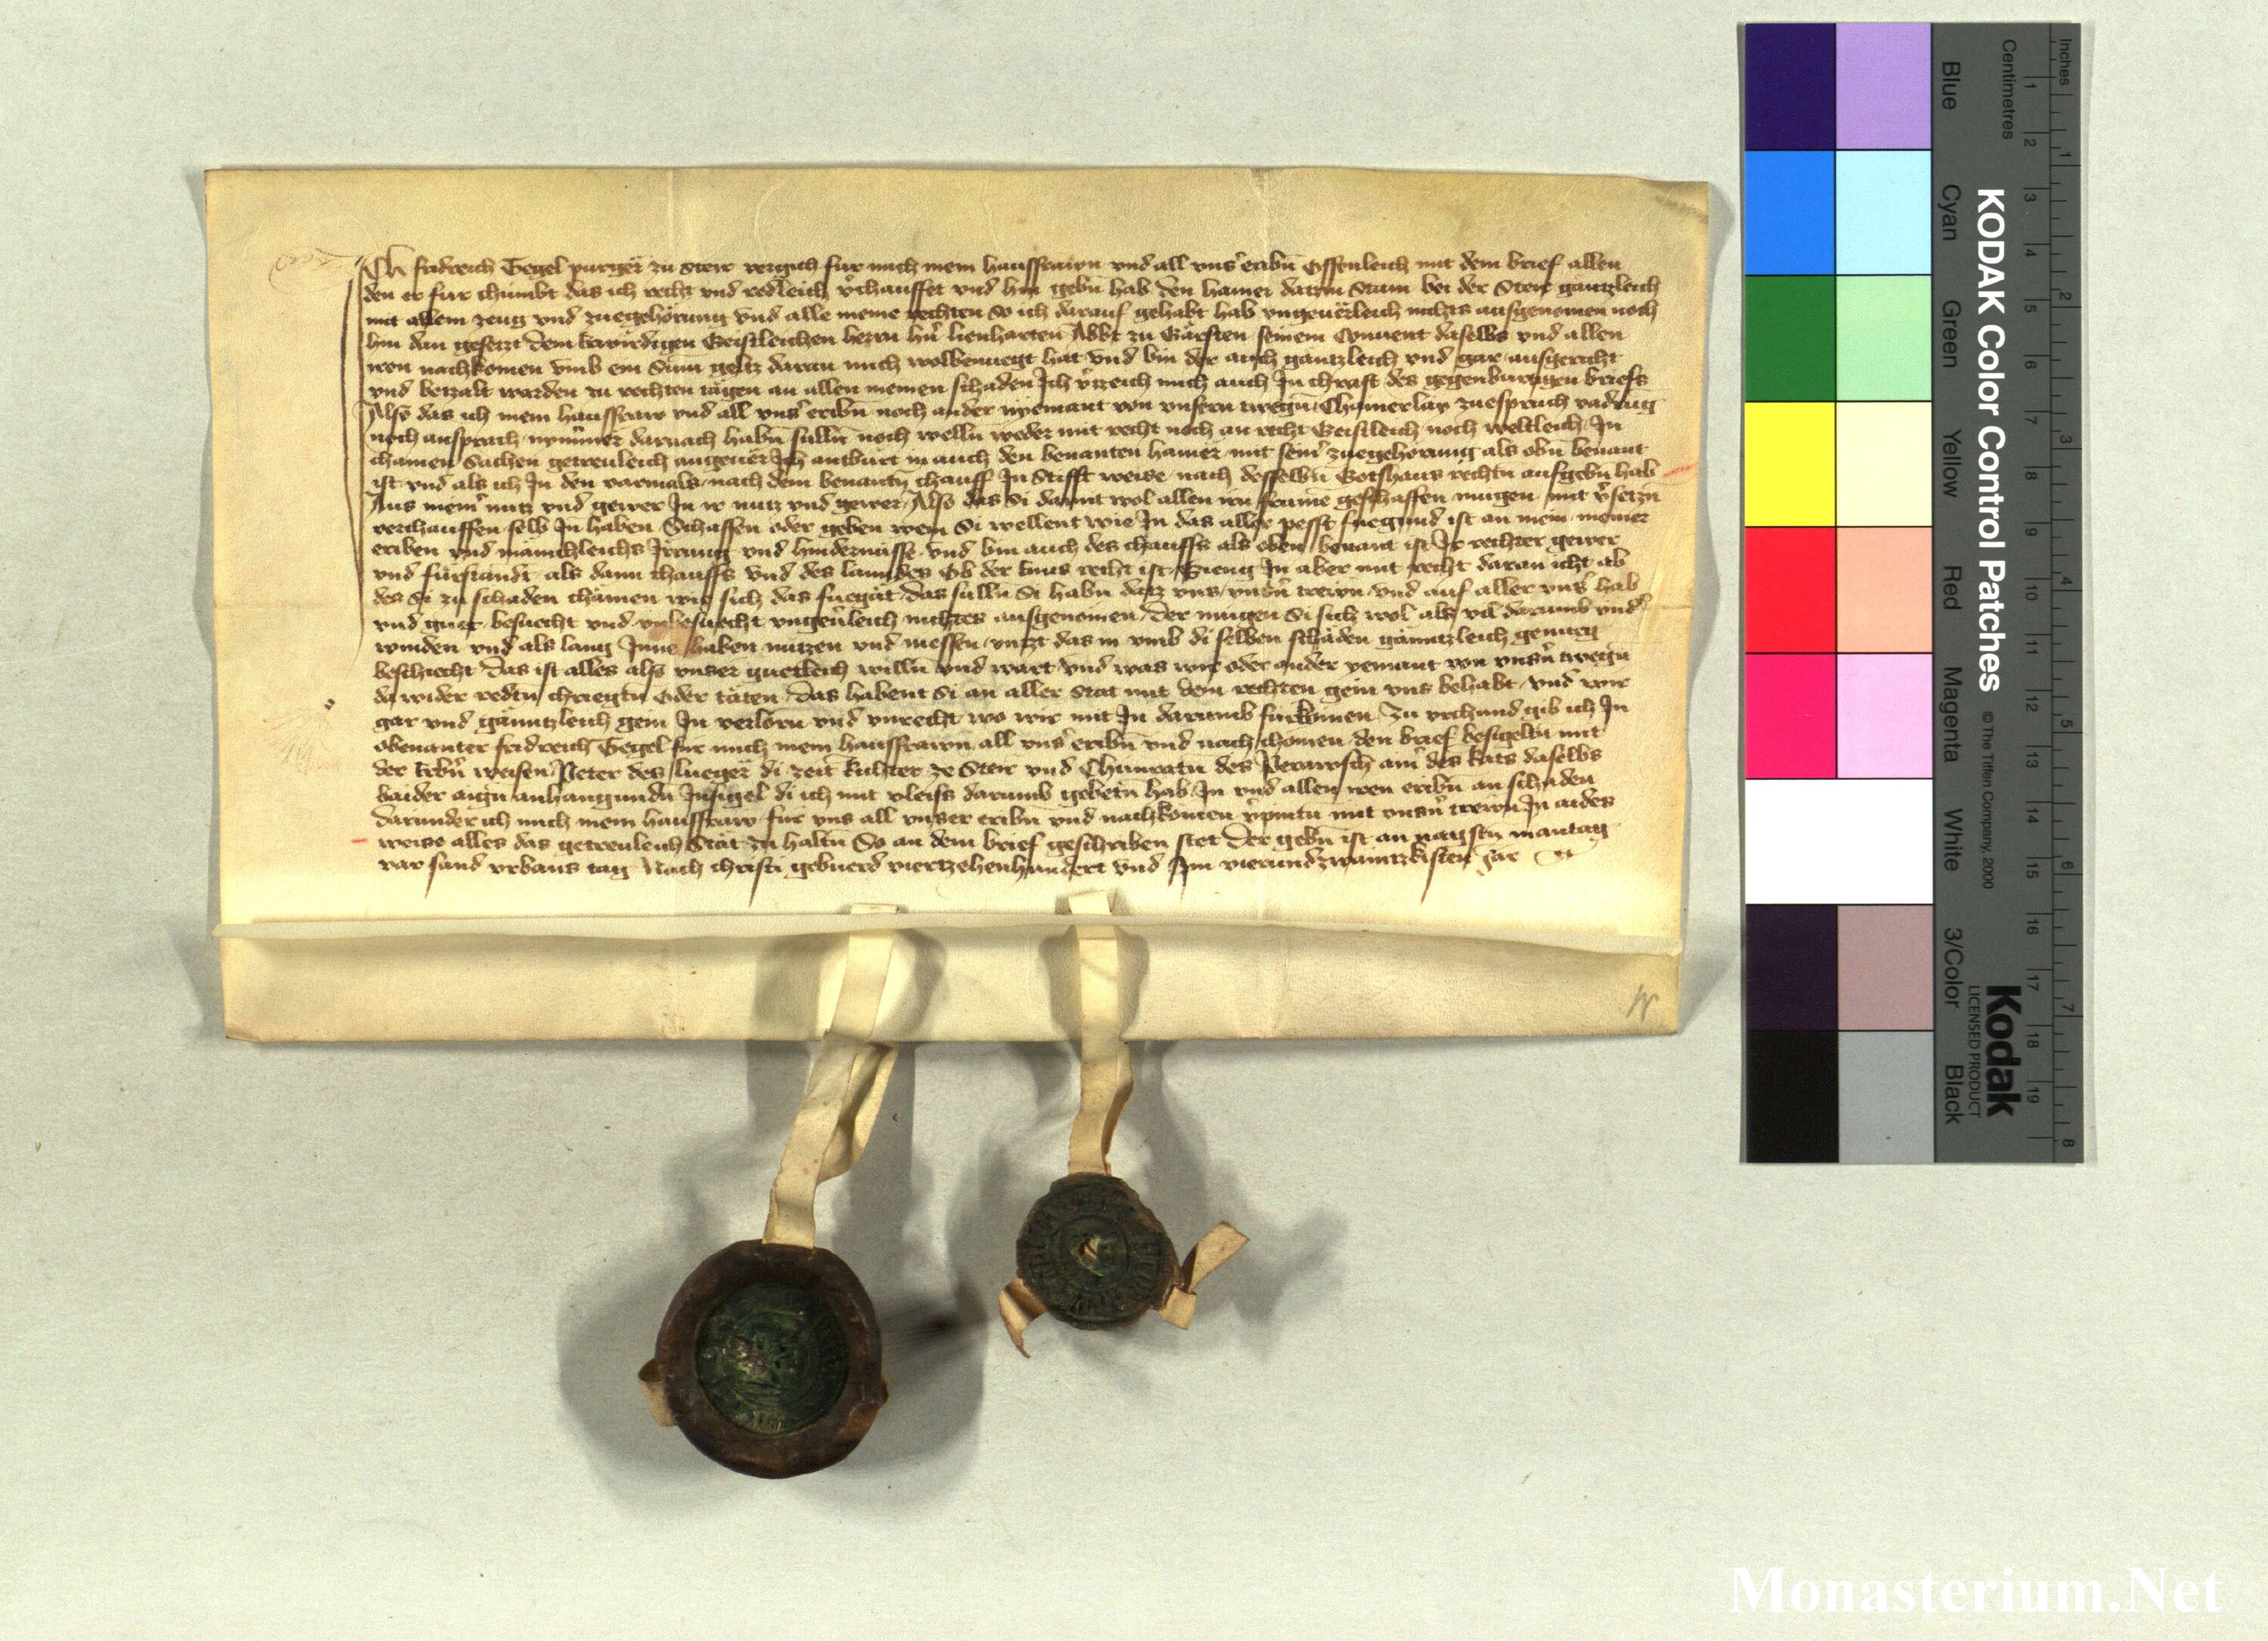 Ich fridreich Gegel purger zu Steir vergich fur mich mein hausfrawn vnd all vns' eribn̄ Offenleich mit dem brief allen
den er fur chumbt das ich recht vnd redleich v'chauffet vnd hin gebn̄ hab den hamer datzm Stain bei der Steir gantzleich
mit allem zeug vnd zuegehörung vnd alle meine rechten So ich darauf gehabt hab vngeuërleich nichts ausgenomen noch
hin dan gesetzt dem Erwirdigen Geistleichen herrn hn̄ lienharten Abbt zu Gärsten seinem Conuent daselbs vnd allen
iren nachkomen vmb ein Sum geltz daran mich wolbenuegt hat vnd bin der auch gantzleich vnd gar ausgericht
vnd betzalt warden zu rechten tägen an allen meinen schaden Ich v'tzeich mich auch In chraft des gegenburtigen briefs
Also das ich mein hausfraw vnd all vns' eribn̄ noch ander nyemant von vnsern wegn̄ Chainerlay zuespruch vadrug
noch ansprach nymmer darnach habn̄ sulln̄ noch welln̄ weder mit recht noch an recht Geistleich noch weltleich In
chainen Sachen getreuleich angeuër Ich antburt in auch den benanten hamer mit sein' zuegehorung als obn̄ benant
ist vnd als ich In den varmals nach dem benantn̄ chauff In Stifft weise nach desselbn̄ Gotshaus rechtn̄ aufgebn̄ hab
Aus mein' nutz vnd gewer In ir nutz vnd gewer Also das Si damit wol allen irn frume geschaffen mugen mit v'setzn̄
verchauffen selb In haben Schaffen oder geben wem Si wellent wie In das aller pesst fuegund ist an mein meiner
eriben vnd mänichleichs Irrung vnd hindernüsse vnd bin auch des chauffs als oben benant ist Ir rechter gewer
vnd fürstandt als dann chauffs vnd des lanndes Ob der Enns recht ist Gieng In aber mit recht daran icht ab
des Si zu schaden chämen wie sich das fuegat das sulln̄ Si habn̄ datz vns vnsn̄ trewn̄ vnd auf aller vns' hab
vnd guet besuecht vnd vnbesuecht vngeu'leich nichtes ausgenomen Der mugen Si sich wol als vil darumb vnd'
winden vnd als lang Inne haben nutzen vnd niessen vntzt das in vmb di selben schäden gänntzleich genueg
beschiecht Das ist alles als vnser guetleich willn̄ vnd wart vnd was wir oder ander yemant von vnsn̄ wegn̄
da wider redtn̄ chriegtn̄ oder täten Das habent Si an aller stat mit dem rechten gein vns behabt vnd wir
gar vnd gänntzleich gein In verlorn vnd vnrecht wo wir mit In darumb fürkömen Zu vrchund gib ich In
obenanter fridreich Gegel fur mich mein hausfrawn all vns' eribn̄ vnd nachchomen den brief besigeltn̄ mit
der Erbn̄ weisen Peter des luegër di zeit Richter ze Steir vnd Chunratn̄ des ain' des Rats daselbs
baider aign̄ anhangundn̄ Insigel di ich mit vleiss darumb gebetn̄ hab In vnd allen iren eribn̄ an schaden
darunder ich mich mein hausfraw fur vns all vnser eribn̄ vnd nachkomen v'pintn̄ mit vnsn̄ trewn̄ In aides
weise alles das getreuleich Stät zu haltn̄ So an dem brief geschriben stet Der gebn̄ ist an nagsten mantag
var sand vrbans tag Nach christi gebuerd viertzehenhundert vnd Im vierundzwaintzkisten Jar
KODAK Color Control Patches
© The Tiffen Company, 2000
Kodak
LICENSED PRODUCT
Inches
Centimetres
Blue Cyan Green Yellow Red Magenta White 3/Color Black
1 2 3 4 5 6 7 8 9 10 11 12 13 14 15 16 17 18 19
1 2 3 4 5 6 7 8
Monasterium.Net